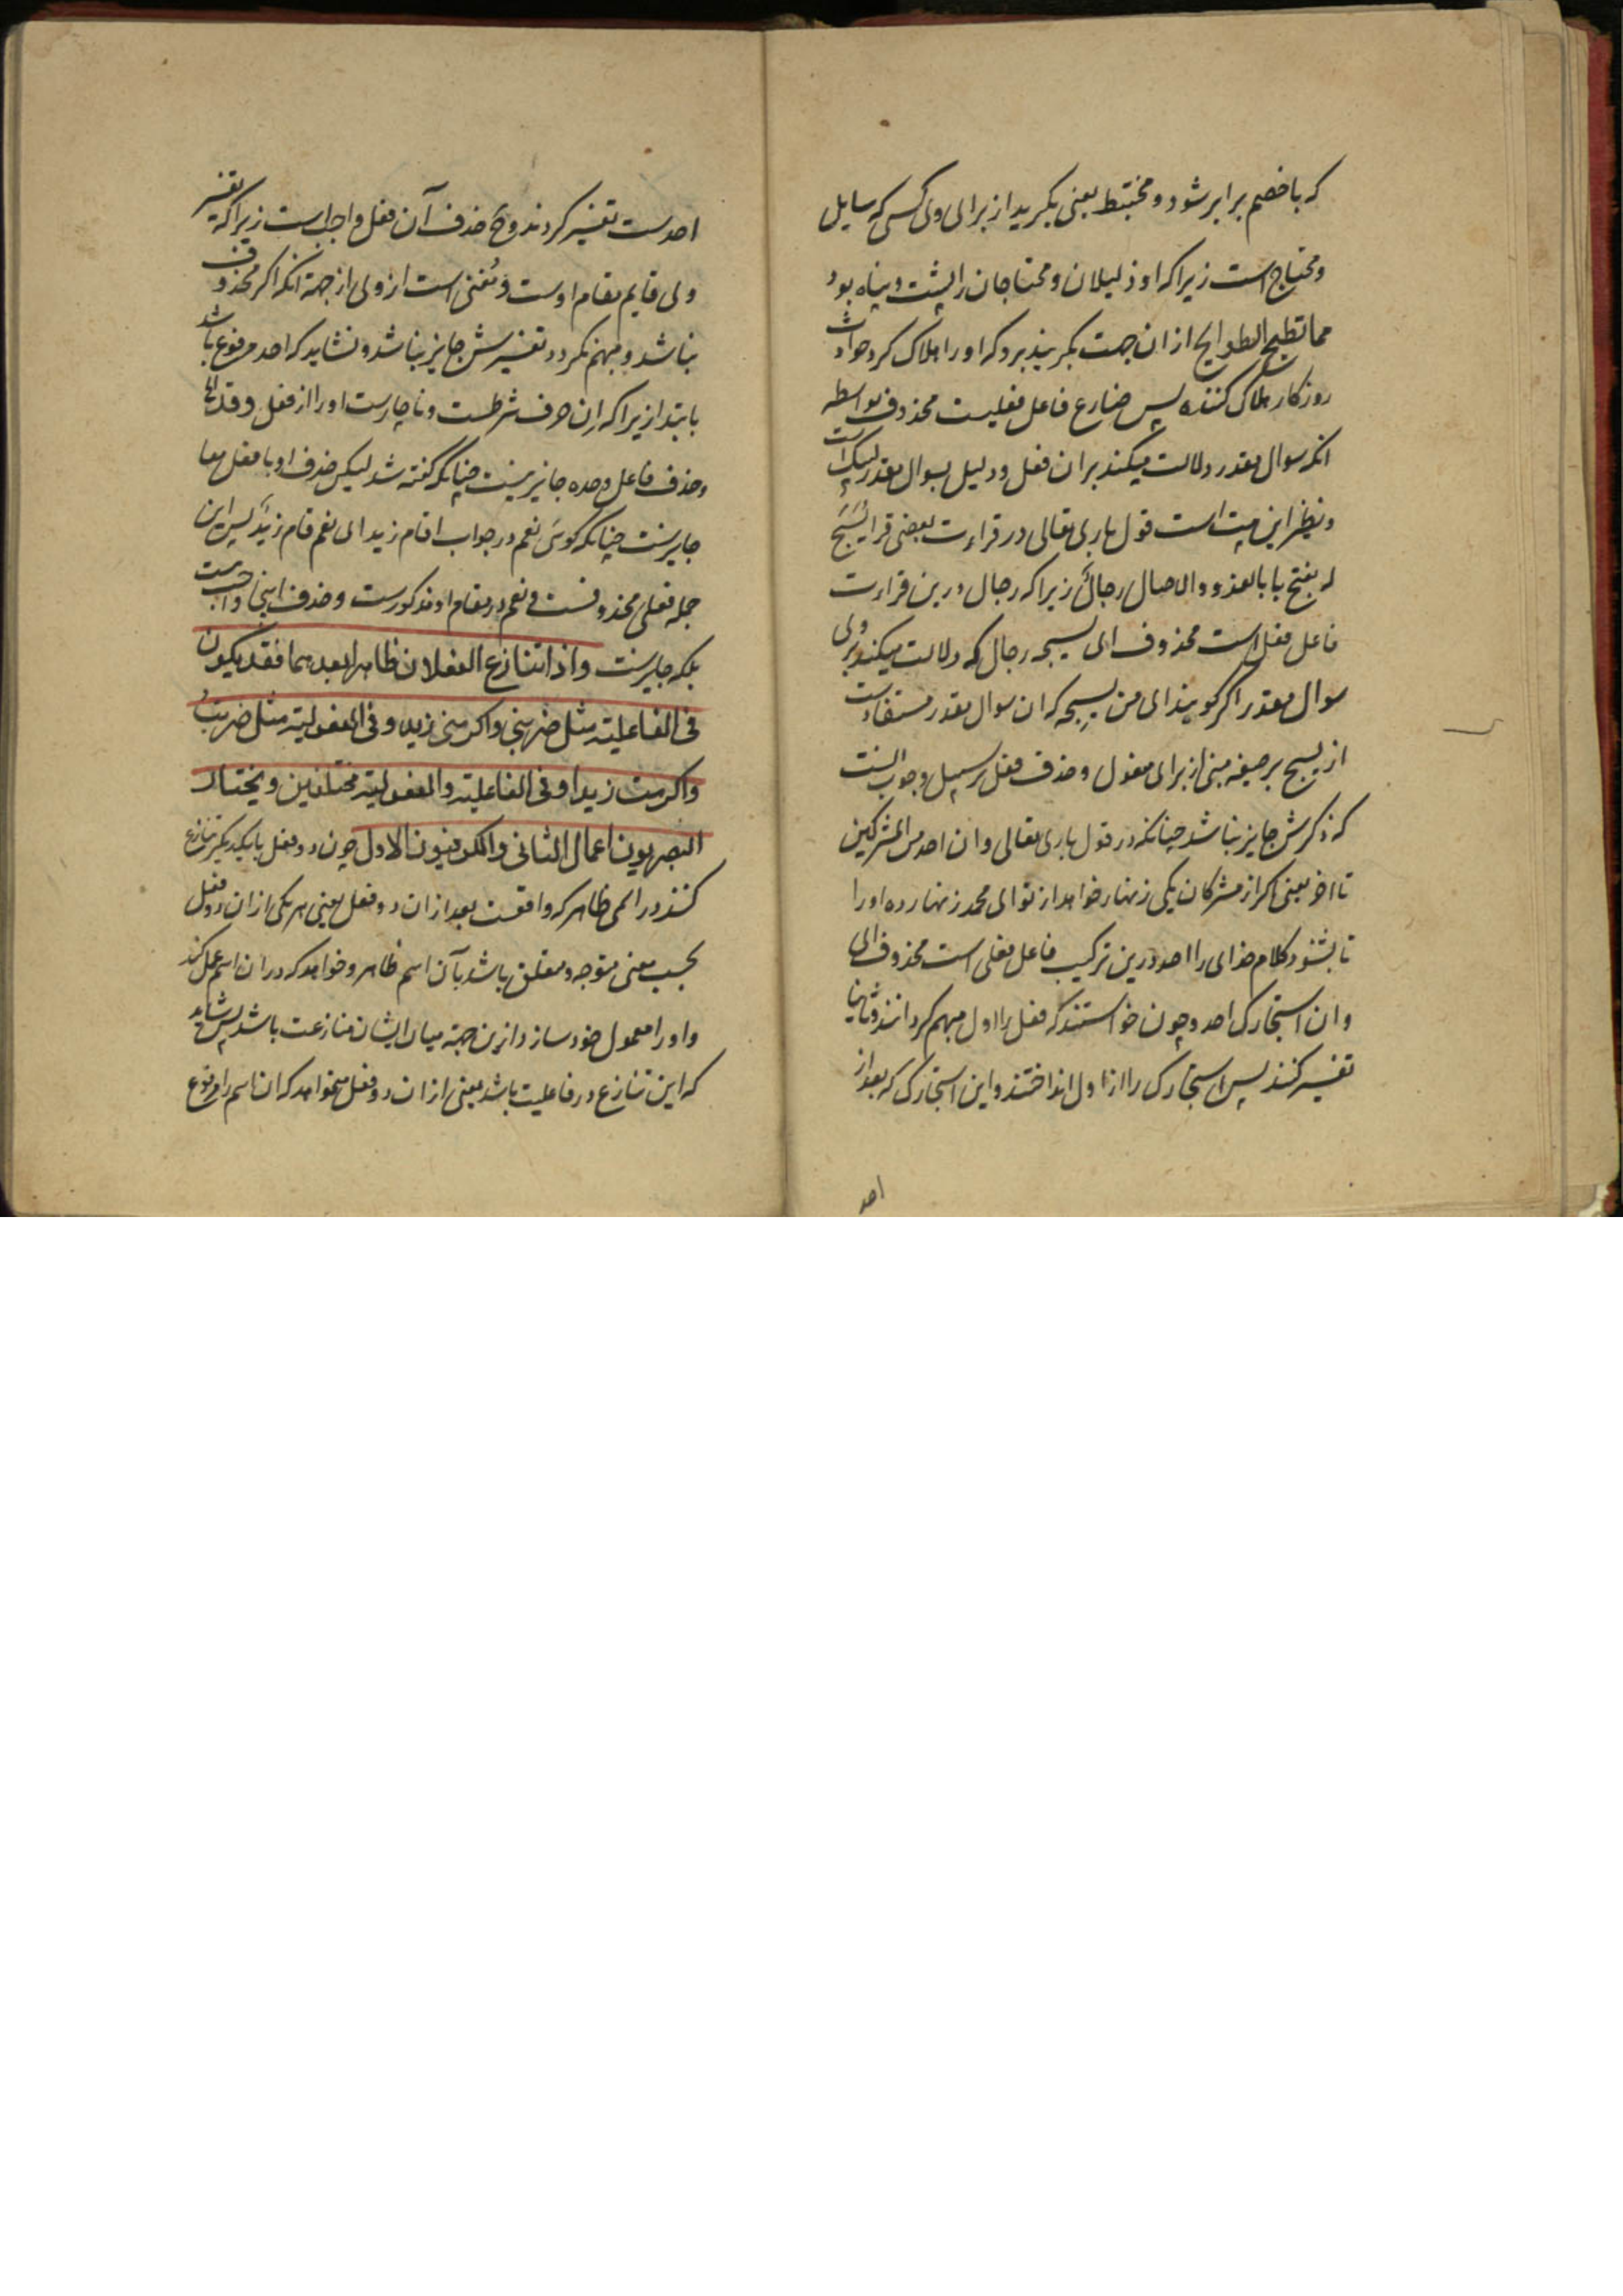 که با خصم برابر شود و مختبط یعنی بگریید از برای وی کسی که سایل
و محتاج است زیرا که او ذلیلان و محتاجان را پشت و پناه بود
مما تطیح الطوایح از ان جهت بگریند برو که او را هلاک کرد حوادث
روزکار هلاک کننده پس ضارع فاعل فعلیست محذوف بواسطه
انکه سوال مقدر دلالت میکند بران فعل و دلیل بسوال مقدر لیبک است
و نظیر این بیت است قول باری تعالی در قراءت بعضی قرا یُسَبَّح
له بفتح با بالغدو والاصال رجالٌ زیرا که رجال درین قراءت
فاعل فعل است محذوف ای یسبحه رجال که دلالت میکند بر وی
سوال مقدر اگر گویند ای من یسبحه که ان سوال مقدر مستفادست
از یسبح بر صیغه مبنی از برای مفعول و حذف فعل بر سبیل وجوب انست
که ذکرش جایز نباشد چنانکه در قول باری تعالی و ان احد من المشرکین
تا اخر یعنی اگر از مشرکان یکی زنهار خواهد از تو ای محمد زنهار ده او را
تا بشنود کلام خدای را احد درین ترکیب فاعل فعلی است محذوف ای
و ان استجارک احد و چون خواستند که فعل را اول مبهم گردانند و ثانیا
تفسیر کنند پس استجارک را از اول انداختند و این استجارک که بعد از
احد
احدست تفسیر کردند و ح حذف آن فعل واجب است زیرا که تفسیر
وی قایم مقام اوست و مُغنی است از وی از جهة انکه اگر محذوف
نباشد و مبهم نگردد تفسیرش جایز نباشد و نشاید که احد مرفوع باشد
بابتدا زیرا که اِن حرف شرطست و ناچارست او را از فعل
و حذف فاعل وحده جایز نیست چنانکه گفته شد لیکن حذف او با فعل معا
جایزست چنانکه گوئی نعم در جواب اقام زید ای نعم قام زیدٌ پس این
جمله فعلی محذوفست و نعم در مقام او مذکورست و حذف اینجا واجب نیست
بلکه جایزست واذا تنازع الفعلان ظاهرا بعدهما فقد یکون
فی الفاعلیة مثل ضربنی واکرمنی زید وفی المفعولیة مثل ضربتُ
واکرمت زیدا وفی الفاعلیة والمفعولیة مختلفین ویختار
البصریون اعمال الثانی والکوفیون الاول چون دو فعل با یکدیگر تنازع
کنند در اسمی ظاهر که واقعست بعد از ان دو فعل یعنی هر یکی از ان دو فعل
بحسب معنی متوجه و متعلق باشد بآن اسم ظاهر و خواهد که در ان اسم عمل کند
و او را معمول خود سازد ازین جهة میان ایشان منازعت باشد پس شاید
که این تنازع در فاعلیت باشد یعنی از ان دو فعل میخواهد که ان اسم را مرفوع